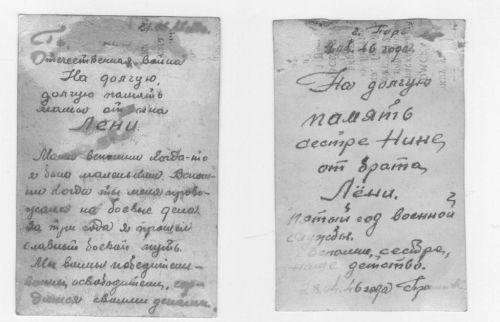 Отечественная война
На долгую,
долгую память
маме от сына
Лёни.
Мама вспомни когда-то
я был маленьким. Вспом-
ни когда ты меня прово-
жала на боевые дела
За три года я прошел
славный боевой путь.
Мы воины победители
воины освободители, гор-
димся своими делами
г.
46 года.
На долгую
память
сестре Нине
от брата
Лёни.
Пятый год военной
службы.
Вспомни, сестра,
наше детство.
46 года